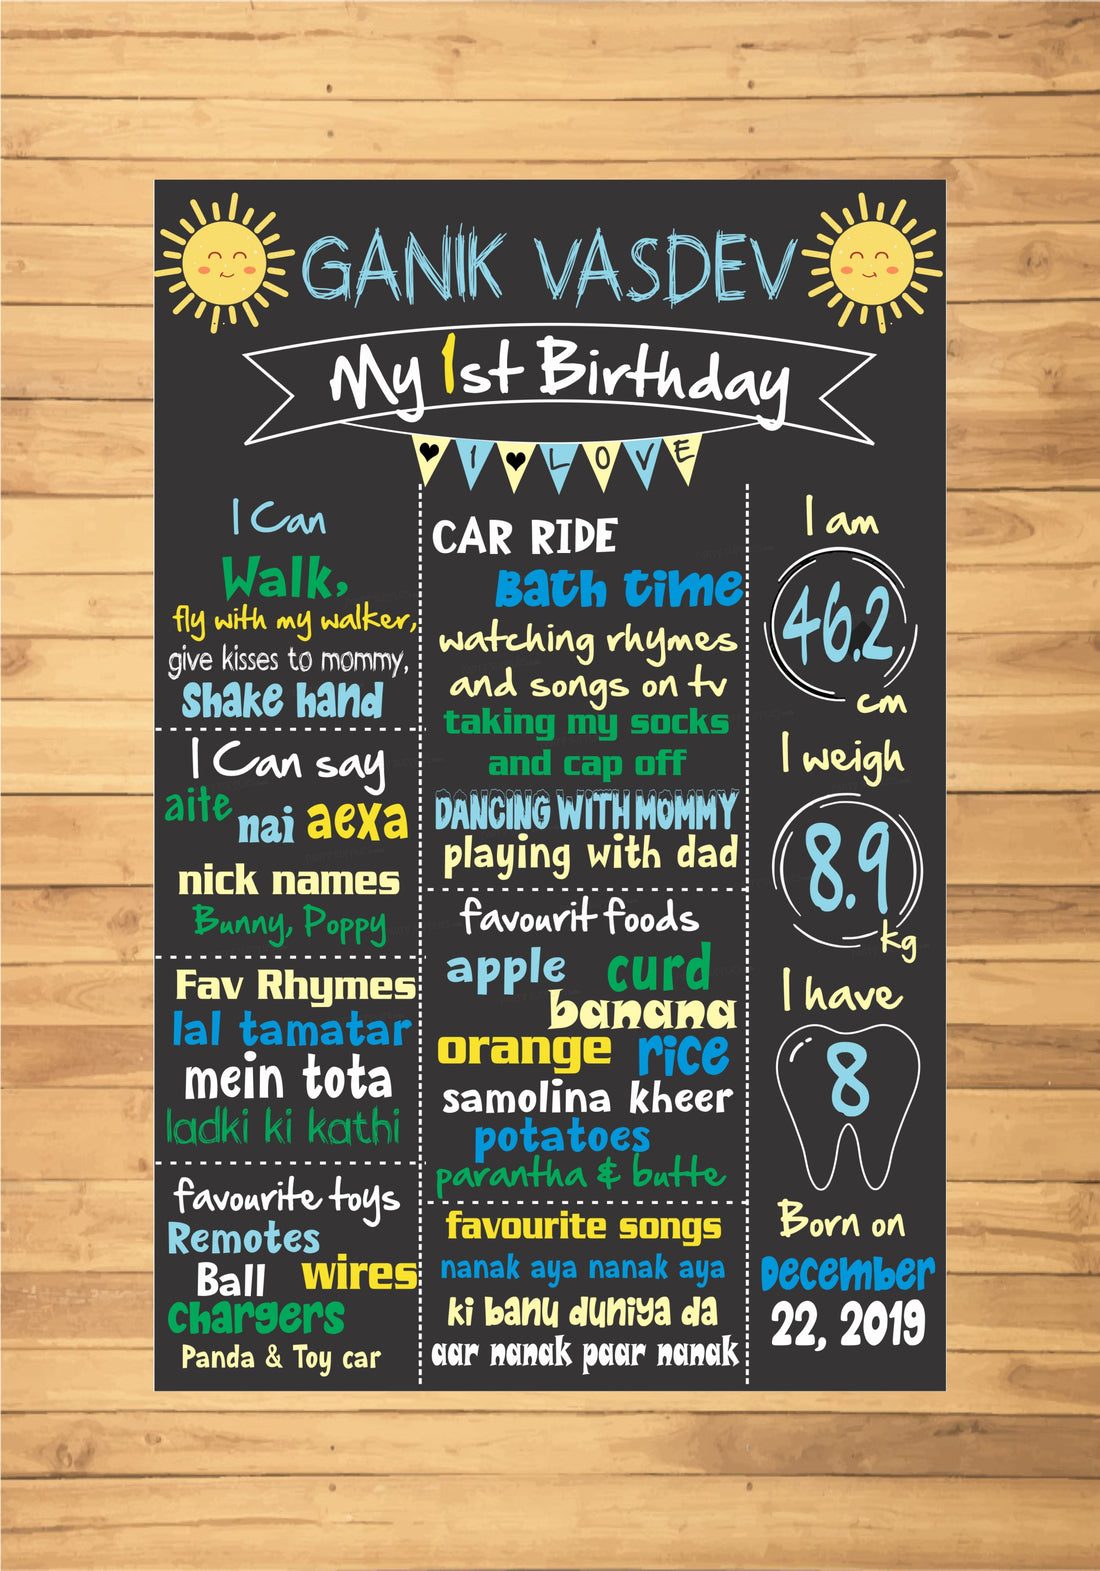 GANIK VASDEV
My 1st Birthday
♥ I ♥ LOVE
I Can
Walk,
fly with my walker,
give kisses to mommy,
Shake hand
I Can say
aite
nai aexa
nick names
Bunny, Poppy
Fav Rhymes
lal tamatar
mein tota
ladki ki kathi
favourite toys
Remotes
Ball wires
chargers
Panda & Toy car
CAR RIDE
Bath time
watching rhymes
and songs on tv
taking my socks
and cap off
DANCING WITH MOMMY
playing with dad
favourit foods
apple curd
banana
orange rice
samolina kheer
potatoes
parantha & butte
favourite songs
nanak aya nanak aya
ki banu duniya da
aar nanak paar nanak
I am
46.2
cm
I weigh
8.9
kg
I have
8
Born on
December
22, 2019